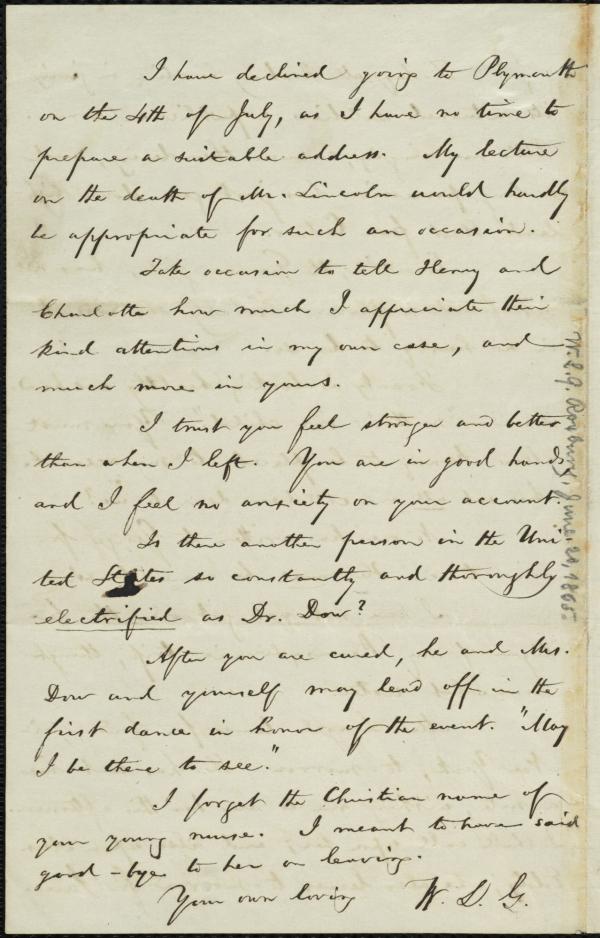 I have declined going to Plymouth
on the 4th of July, as I have no time to
prepare a suitable address. My lecture
on the death of Mr. Lincoln would hardly
be appropriate for such an occasion.
Take occasion to tell Henry and
Charlotte how much I appreciate their
kind attentions in my own case, and
much more in yours.
I trust you feel stronger and better
than when I left. You are in good hands
and I feel no anxiety on your account.
Is there another person in the Uni-
ted States so constantly and thoroughly
electrified as Dr. Dow?
After you are cured, he and Mrs.
Dow and yourself may lead off in the
first dance in honor of the event. "May
I be there to see."
I forget the Christian name of
your young nurse. I meant to have said
good-bye to her on leaving.
Your own loving W. L. G.
W.L.G. Roxbury, June 1865.